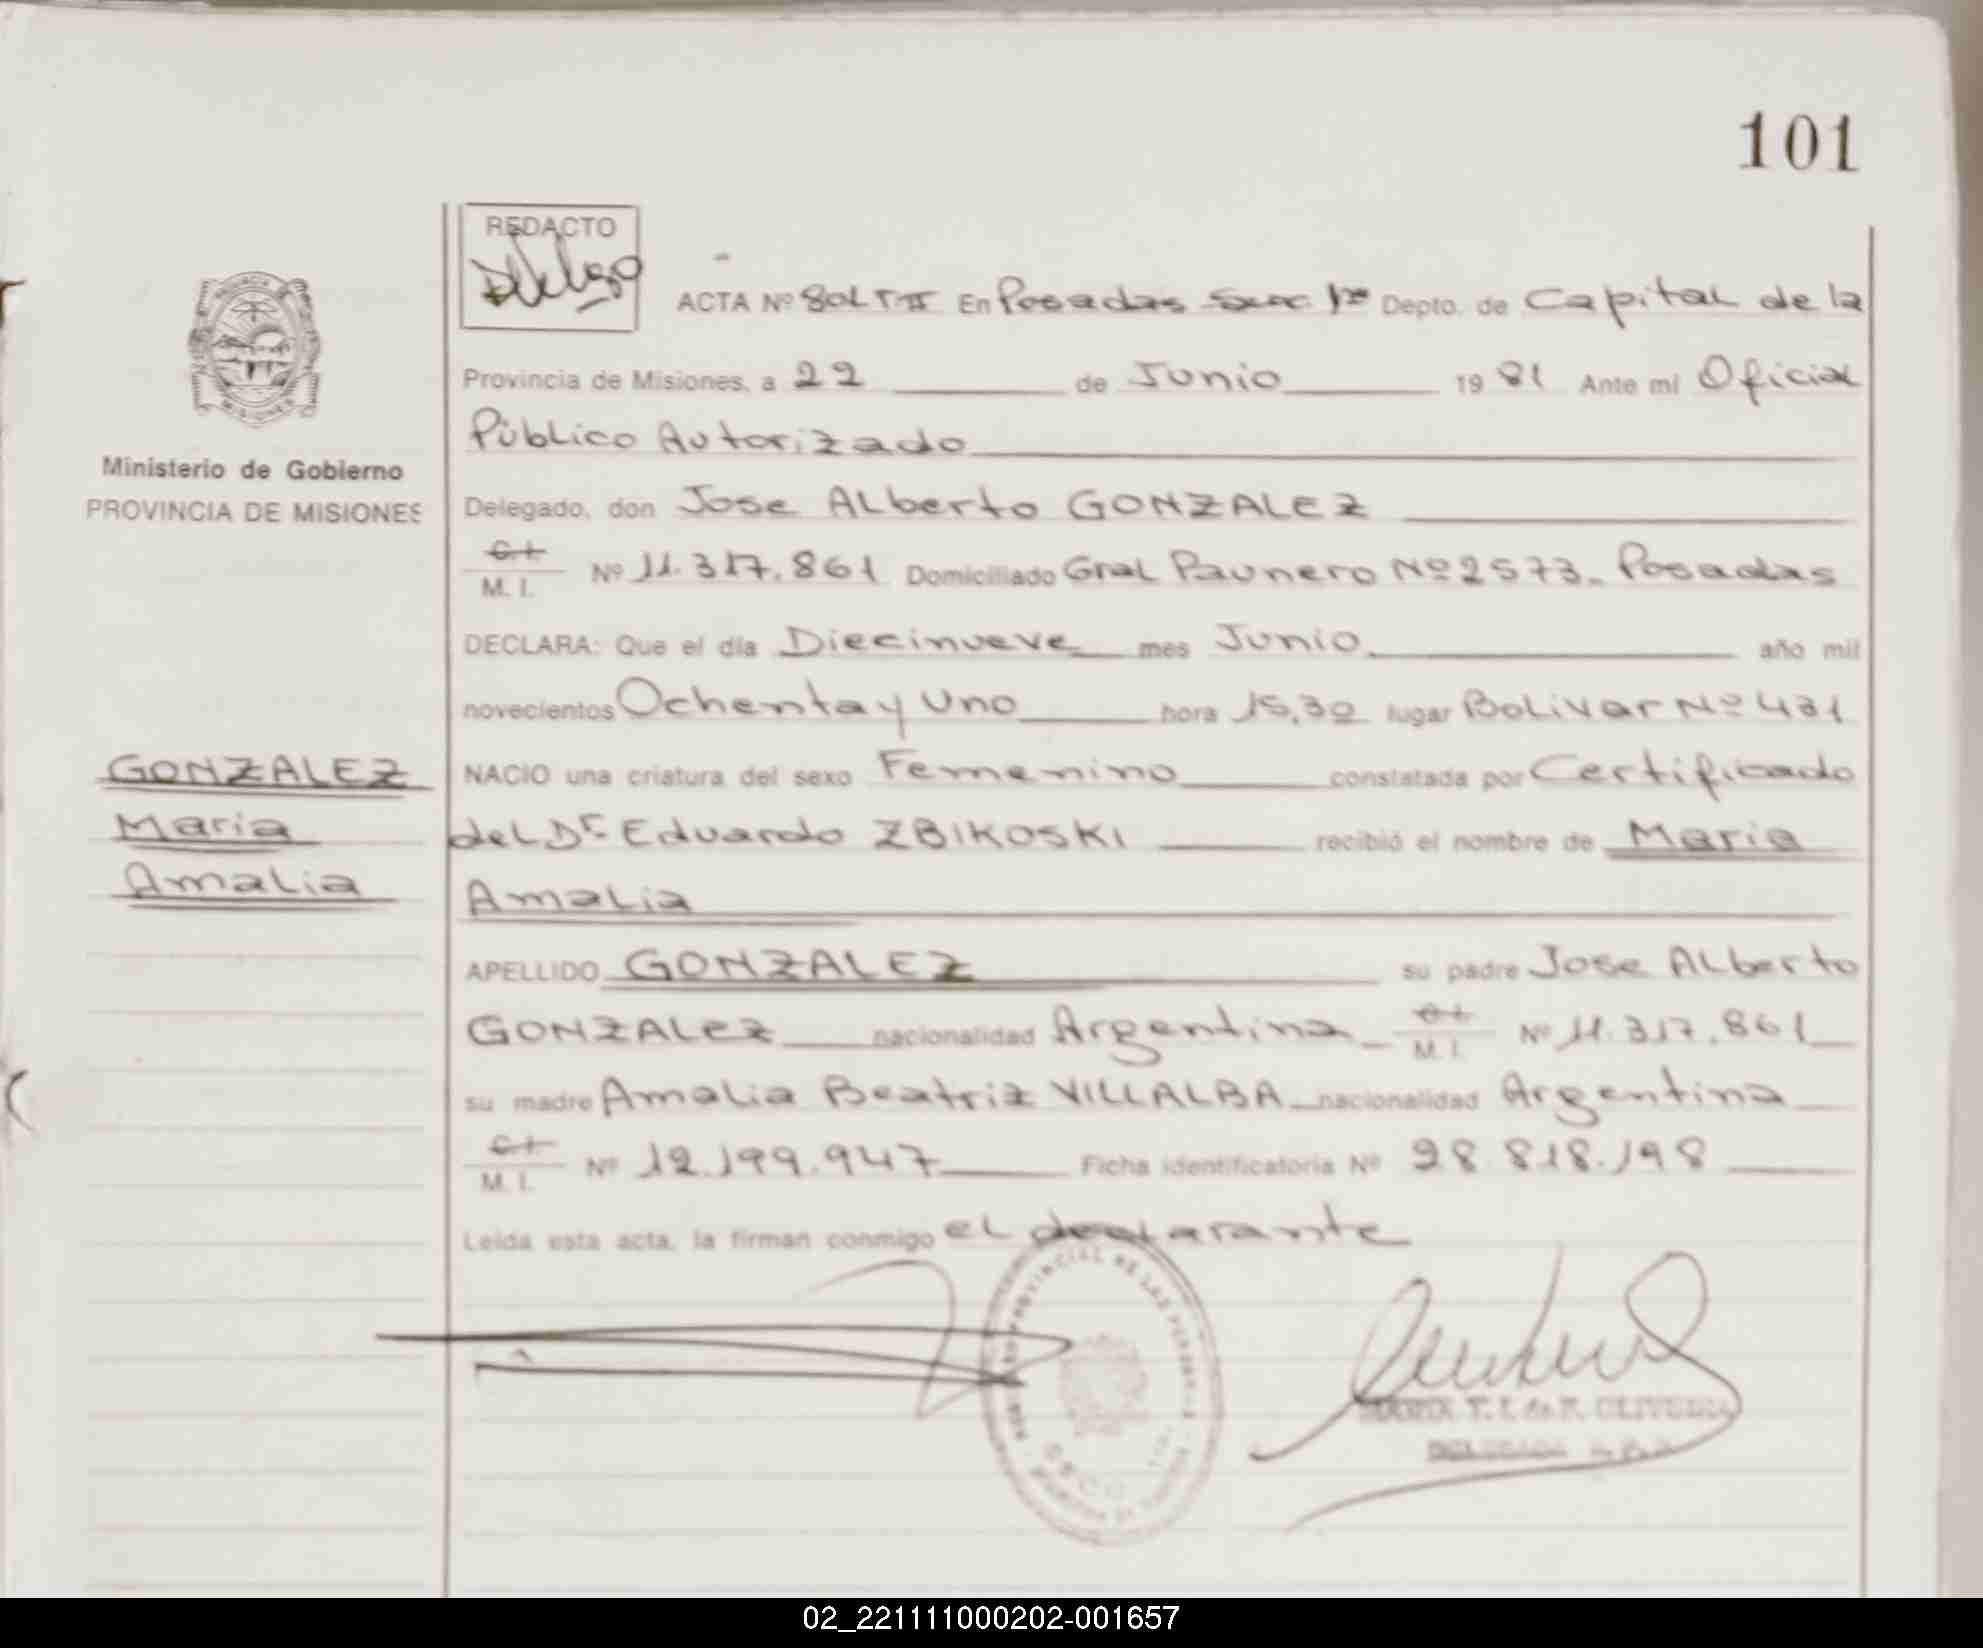 101
REDACTO
ACTA Nº 801 T II En Posadas Secc. 1ra Depto. de Capital de la
Provincia de Misiones, a 22 de Junio 1981 Ante mi Oficial
Público Autorizado
Ministerio de Gobierno
PROVINCIA DE MISIONES
Delegado, don Jose Alberto GONZALEZ
C.I.
M. I. Nº 11.317.861 Domiciliado Gral Paunero Nº 2573. Posadas
DECLARA: Que el día Diecinueve mes Junio año mil
novecientos Ochenta y Uno hora 15,30 lugar Bolivar Nº 431
GONZALEZ
Maria
Amalia
NACIO una criatura del sexo Femenino constatada por Certificado
del Dr Eduardo ZBIKOSKI recibió el nombre de Maria
Amalia
APELLIDO GONZALEZ su padre Jose Alberto
GONZALEZ nacionalidad Argentina C.I.
M. I. Nº 11.317.861
su madre Amalia Beatriz VILLALBA nacionalidad Argentina
C.I.
M. I. Nº 12.199.947 Ficha identificatoria Nº 28.818.198
Leída esta acta, la firman conmigo el declarante
OLIVEIRA
02_221111000202-001657